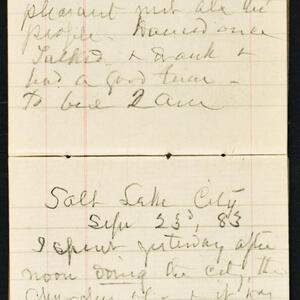 pleasant met all the
people. Danced once
Talked & drank &
had a good time -
To bed 2 am
Salt Lake City
Sep 23d, 83
I spent yesterday after
noon doing the city, the